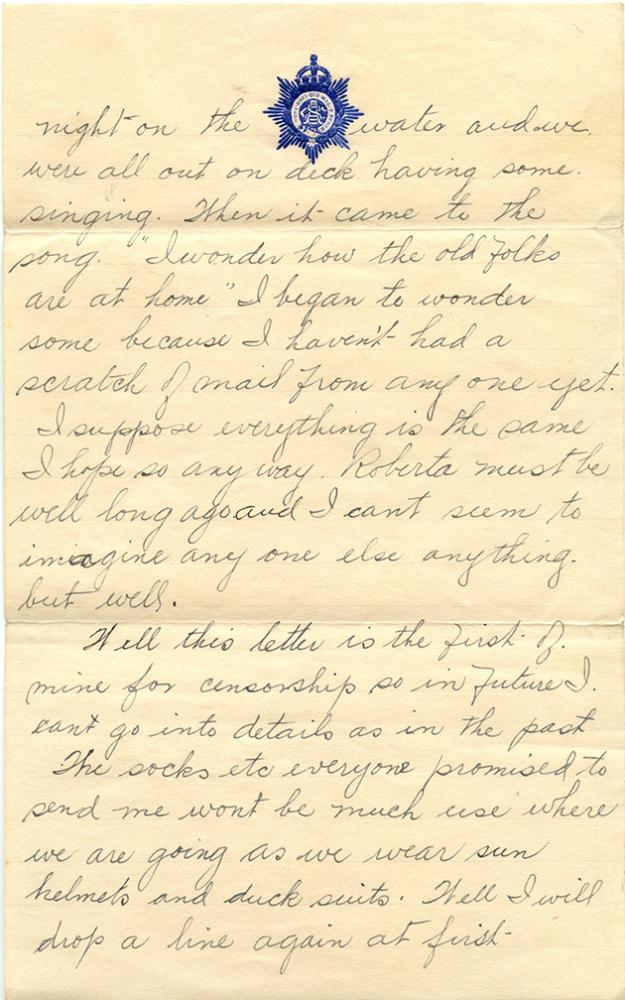 night on the water and we.
were all out on deck having some.
singing. When it came to the
song. "I wonder how the old folks
are at home" I began to wonder
some because I haven't had a
scratch of mail from any one yet.
I suppose everything is the same
I hope so any way. Roberta must be
well long ago and I cant seem to
imagine any one else anything.
but well.
Well this letter is the first of.
mine for censorship so in future I.
cant go into details as in the past
The socks etc everyone promised to
send me wont be much use where
we are going as we wear sun
helmets and duck suits. Well I will
drop a line again at first